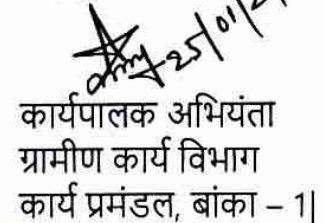 25/01/2
कार्यपालक अभियंता
ग्रामीण कार्य विभाग
कार्य प्रमंडल, बांका – 1|